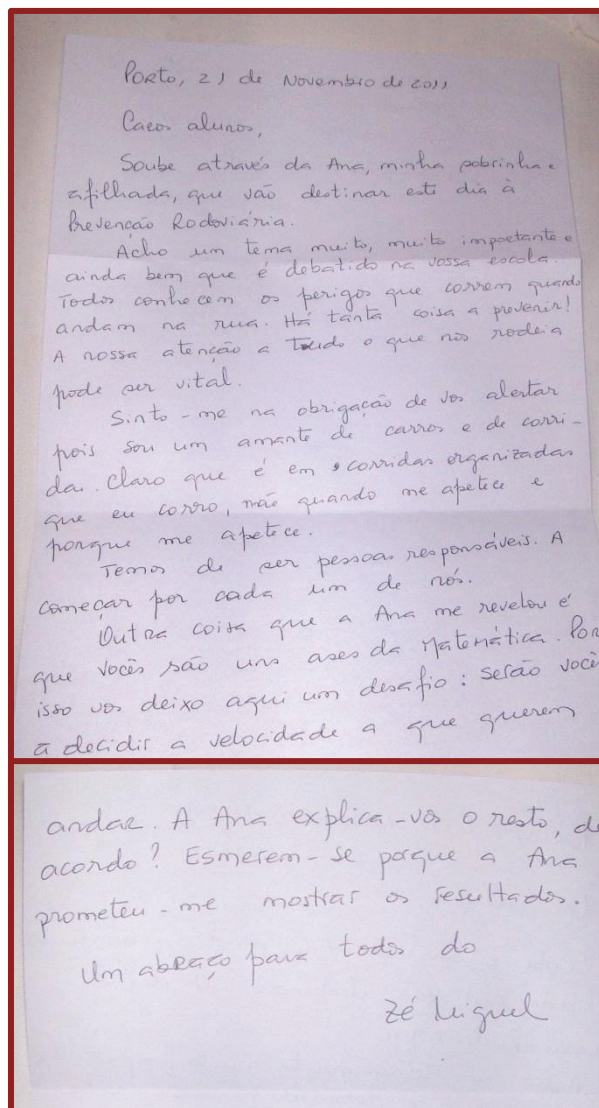 Porto, 21 de Novembro de 2011
Caros alunos,
Soube através da Ana, minha sobrinha e
afilhada, que vão destinar este dia à
Prevenção Rodoviária.
Acho um tema muito, muito importante e
ainda bem que é debatido na vossa escola.
Todos conhecem os perigos que correm quando
andam na rua. Há tanta coisa a prevenir!
A nossa atenção a tudo o que nos rodeia
pode ser vital.
Sinto-me na obrigação de vos alertar
pois sou um amante de carros e de corri-
das. Claro que é em corridas organizadas
que eu corro, não quando me apetece e
porque me apetece.
Temos de ser pessoas responsáveis. A
começar por cada um de nós.
Outra coisa que a Ana me revelou é
que vocês são uns ases da Matemática. Por
isso vos deixo aqui um desafio: serão você
a decidir a velocidade a que querem
andar. A Ana explica-vos o resto, de
acordo? Esmerem-se porque a Ana
prometeu-me mostrar os resultados.
Um abraço para todos do
Zé Miguel